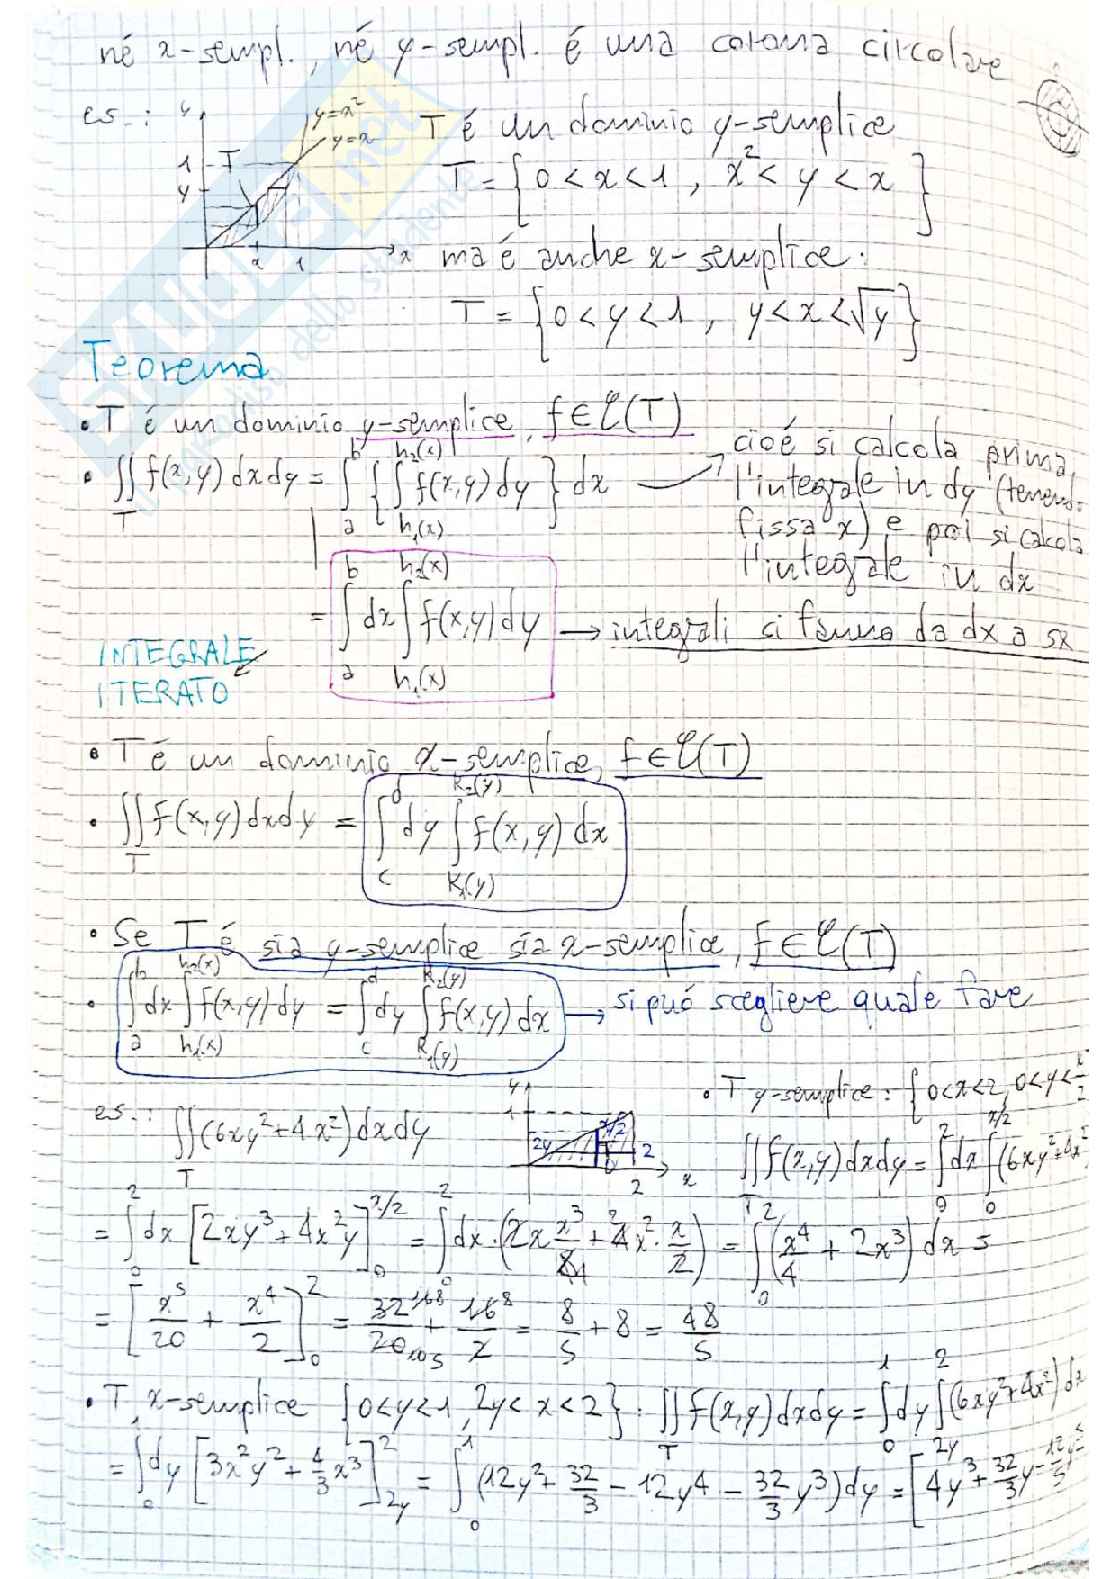 né x-sempl., né y-sempl. é una corona circolare
es.: y y=x² T é un dominio y-semplice
y=x
1 T
y T = {0<x<1, x²<y<x}
x 1 x ma é anche x-semplice:
T = {0<y<1, y<x<√y}
Teorema
• T é un dominio y-semplice, f∈C(T)
• ∬_T f(x,y) dxdy = ∫_a^b {∫_{h₁(x)}^{h₂(x)} f(x,y) dy} dx → cioé si calcola prima
l'integrale in dy (tenendo
fissa x) e poi si calcola
l'integrale in dx
= ∫_a^b dx ∫_{h₁(x)}^{h₂(x)} f(x,y) dy → integrali si fanno da dx a sx
INTEGRALE
ITERATO
• T é un dominio x-semplice, f∈C(T)
• ∬_T f(x,y) dxdy = ∫_c^d dy ∫_{k₁(y)}^{k₂(y)} f(x,y) dx
• Se T é sia y-semplice sia x-semplice, f∈C(T)
• ∫_a^b dx ∫_{h₁(x)}^{h₂(x)} f(x,y) dy = ∫_c^d dy ∫_{k₁(y)}^{k₂(y)} f(x,y) dx → si puó scegliere quale fare
• T y-semplice: {0<x<2, 0<y<x/2
es.: ∬_T (6xy²+4x²) dxdy
y 1 2y x/2 2 2 x
∬_T f(x,y) dxdy = ∫_0^2 dx ∫_0^{x/2} (6xy²+4x²
= ∫_0^2 dx [2xy³+4x²y]_0^{x/2} = ∫_0^2 dx · (2x x³/8 + 4x² · x/2) = ∫_0^2 (x⁴/4 + 2x³) dx =
= [x⁵/20 + x⁴/2]_0^2 = 32/20 + 16/2 = 8/5 + 8 = 48/5
• T x-semplice {0<y<1, 2y<x<2}: ∬_T f(x,y) dxdy = ∫_0^1 dy ∫_{2y}^2 (6xy²+4x²) dx
= ∫_0^1 dy [3x²y² + 4/3 x³]_{2y}^2 = ∫_0^1 (12y² + 32/3 - 12y⁴ - 32/3 y³) dy = [4y³ + 32/3 y - 12/5 y⁵